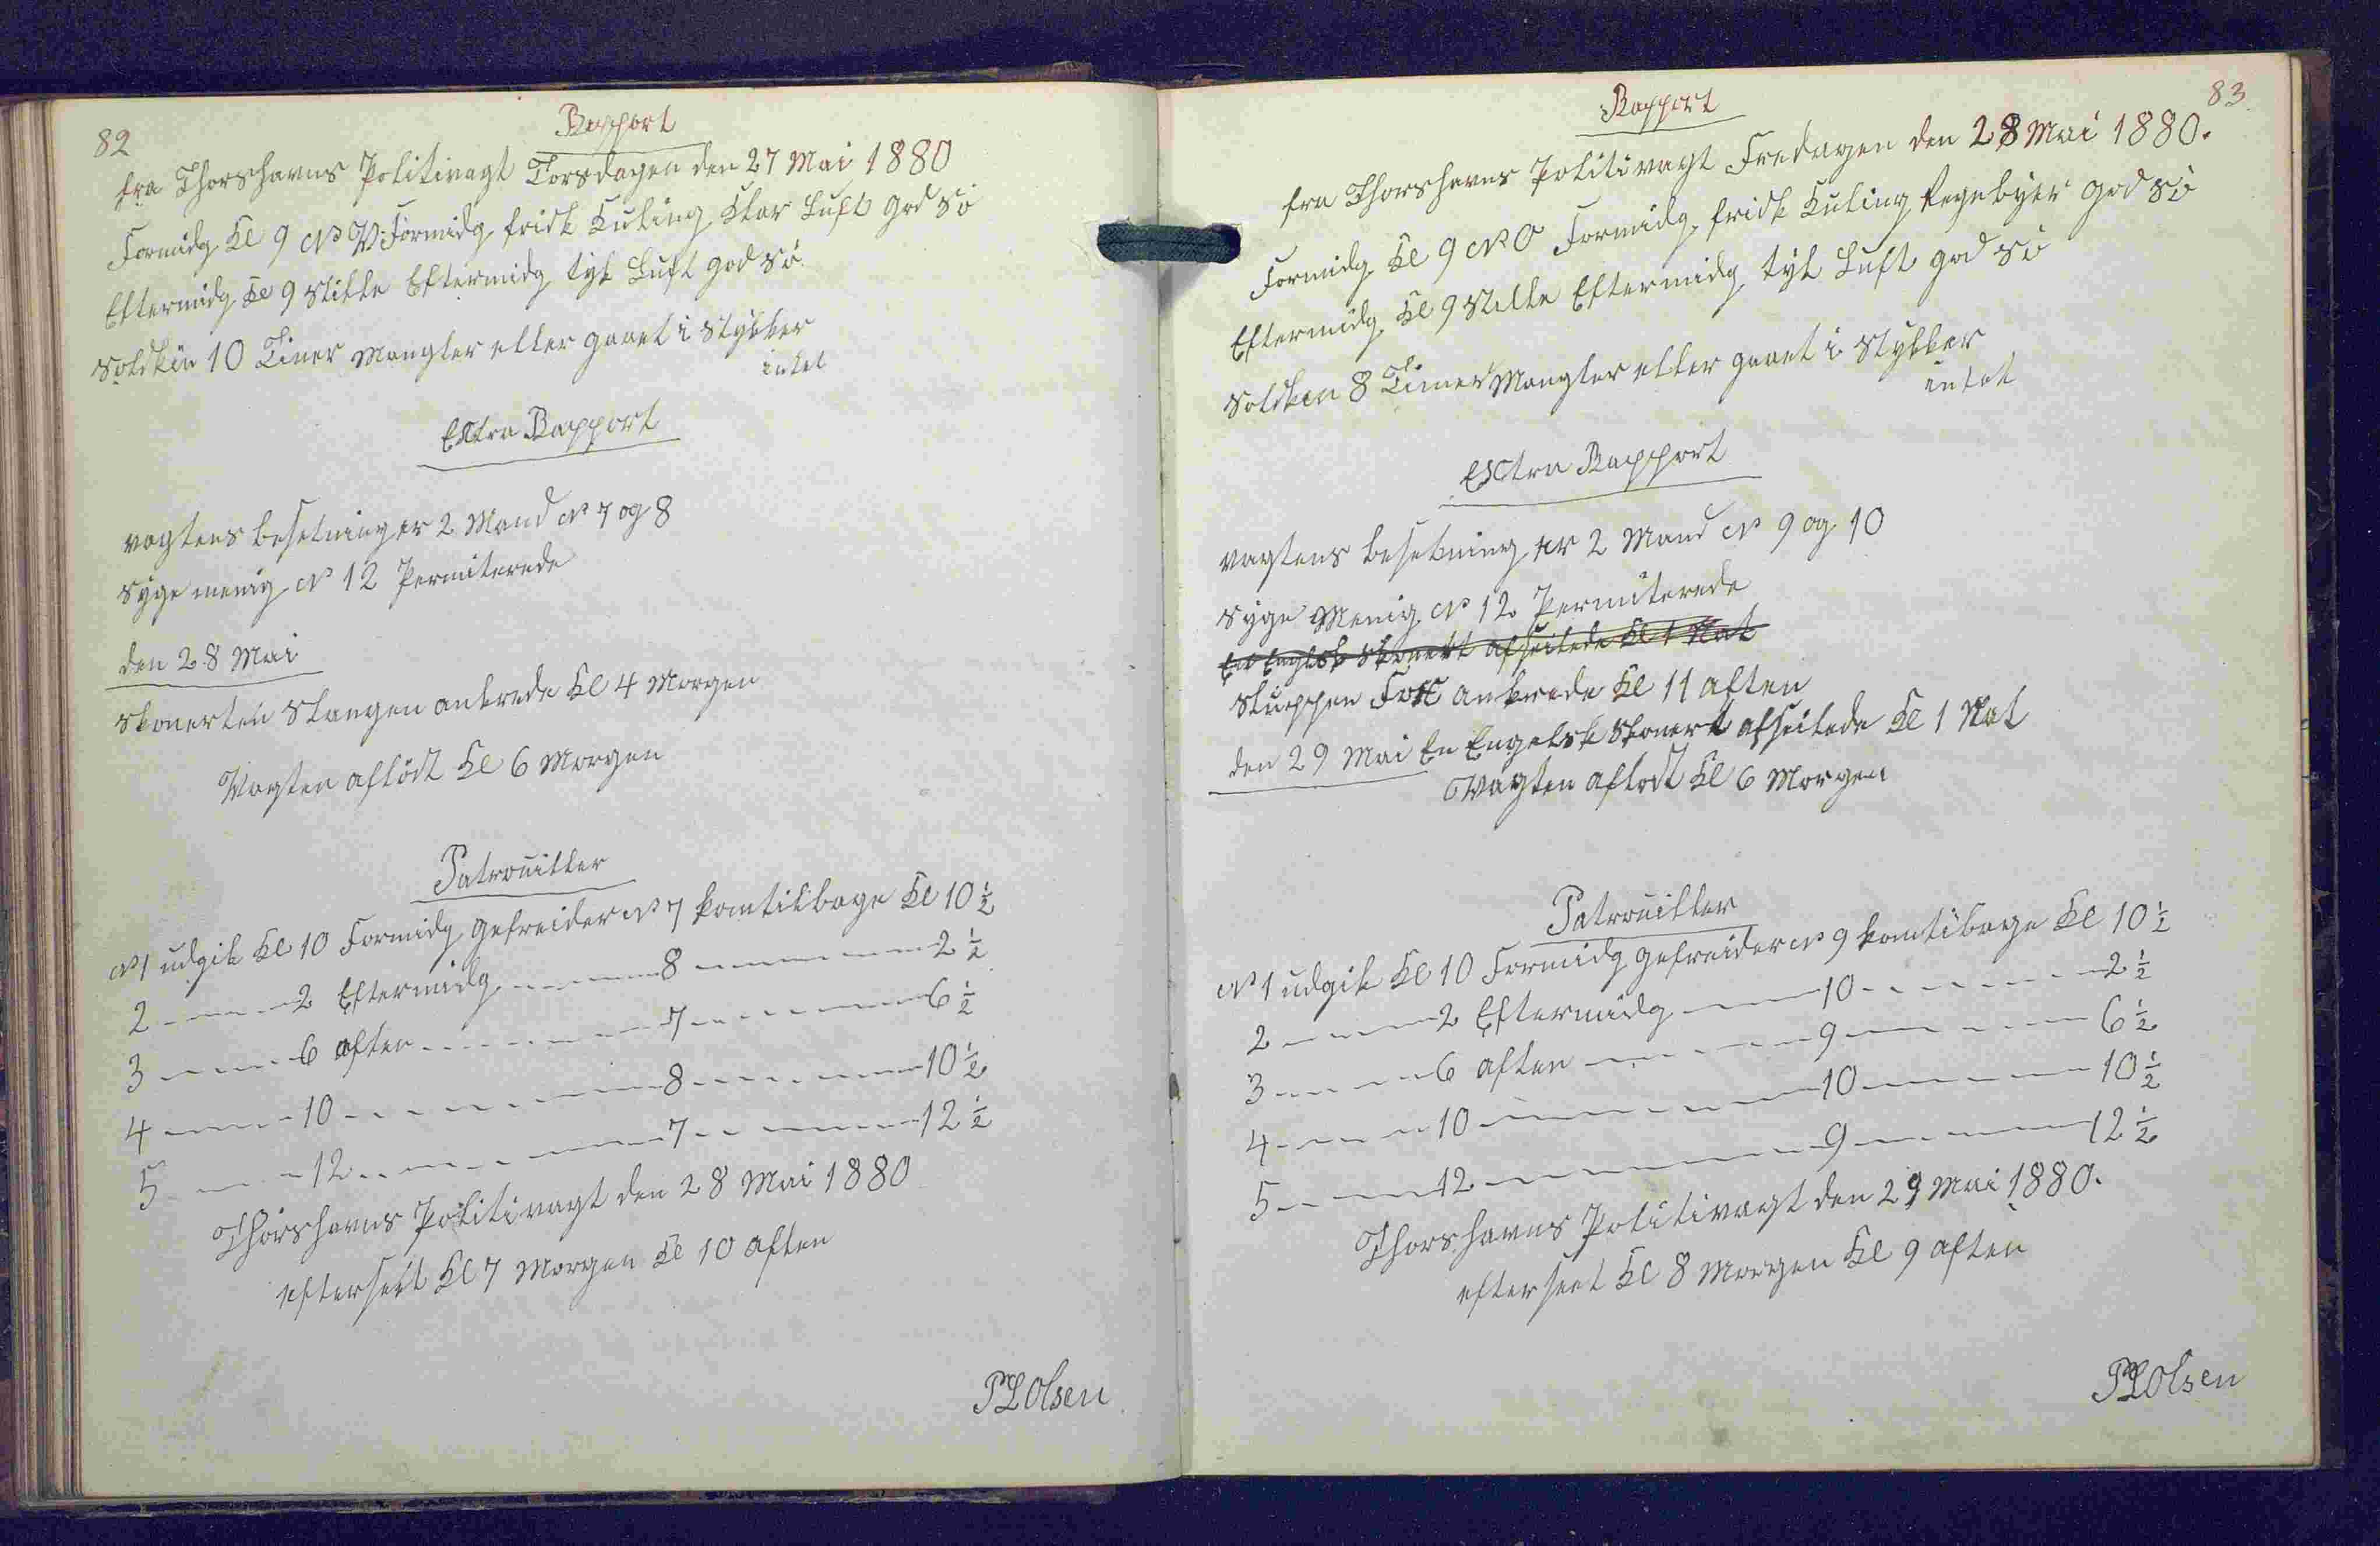 82
Rapport
fra Thorshavns Politivagt Torsdagen den 27 Mai 1880
Formidg Kl 9 N V. Formidg frisk Kuling Klar Luft god Sö
Eftermidg Kl 9 Stille Eftermidg tyk Luft god Sö
Solskin 10 Timer Mangler eller gaaet i Stykker
intet
Extra Rapport
vagtens besetning er 2 Mand No 7 og 8
Syge menig No 12 Permiterede
den 28 Mai
Skonerten Stangen ankrede Kl 4 Morgen
Vagten aflöst Kl 6 Morgen
Patrouiller
No 1 udgik Kl 10 Formidg gefreider No 7 kom tilbage Kl 10 1/2
2 — 2 Eftermidg — 8 — 2 1/2
3 — 6 Aften — 7 — 6 1/2
4 — 10 — 8 — 10 1/2
5 — 12 — 7 — 12 1/2
Thorshavns Politivagt den 28 Mai 1880
efterseet Kl 7 Morgen Kl 10 Aften
PLOlsen
83
Rapport
fra Thorshavns Politivagt Fredagen den 28 Mai 1880.
Formidg Kl 9 N O Formidg frisk Kuling Regnbyer god Sö
Eftermidg Kl 9 Stille Eftermidg tyk Luft god Sö
Solskin 8 Timer Mangler eller gaaet i Stykker
intet
Extra Rapport
vagtens besetning er 2 Mand No 9 og 10
Syge Menig No 12 Permiterede
En Englsk Skonert afseilede Kl 1 Nat
Sluppen Fox ankrede Kl 11 Aften
den 29 Mai En Engelsk Skonert afseilede Kl 1 Nat
Vagten aflöst Kl 6 Morgen
Patrouiller
No 1 udgik Kl 10 Formidg gefreider No 9 kom tilbage Kl 10 1/2
2 — 2 Eftermidg — 10 — 2 1/2
3 — 6 Aften — 9 — 6 1/2
4 — 10 — 10 — 10 1/2
5 — 12 — 9 — 12 1/2
Thorshavns Politivagt den 29 Mai 1880.
efterseet Kl 8 Morgen Kl 9 Aften
PLOlsen